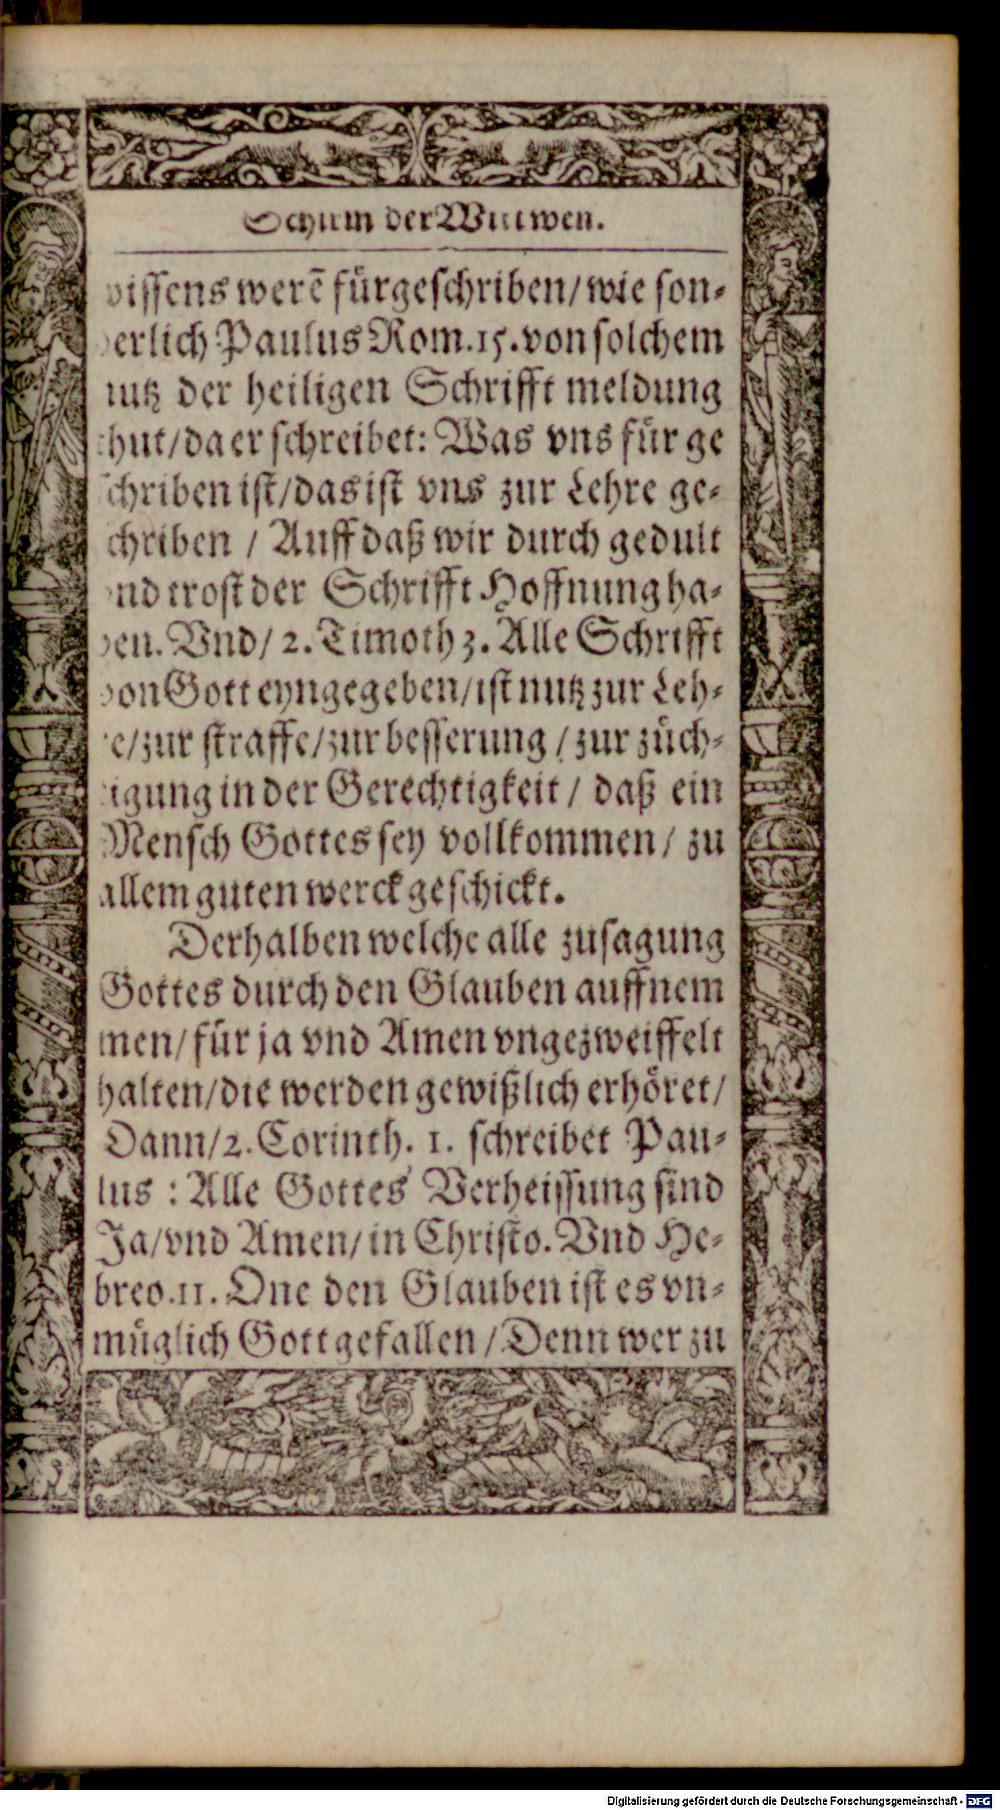 Schirm der Witwen.
wissens werē fürgeschriben/ wie son-
derlich Paulus Rom. 15. von solchem
nutz der heiligen Schrifft meldung
thut/ da er schreibet: Was vns für ge
schriben ist/ das ist vns zur Lehre ge-
schriben / Auff daß wir durch gedult
vnd trost der Schrifft Hoffnung ha-
ben. Vnd/ 2. Timoth 3. Alle Schrifft
von Gott eyngegeben/ ist nutz zur Leh-
re/ zur straffe/ zur besserung / zur züch-
tigung in der Gerechtigkeit / daß ein
Mensch Gottes sey vollkommen/ zu
allem guten werck geschickt.
Derhalben welche alle zusagung
Gottes durch den Glauben auffnem
men/ für ja vnd Amen vngezweiffelt
halten/ die werden gewißlich erhöret/
Dann/ 2. Corinth. 1. schreibet Pau-
lus : Alle Gottes Verheissung sind
Ja/ vnd Amen/ in Christo. Vnd He-
breo. 11. One den Glauben ist es vn-
müglich Gott gefallen / Denn wer zu
Digitalisierung gefördert durch die Deutsche Forschungsgemeinschaft - DFG